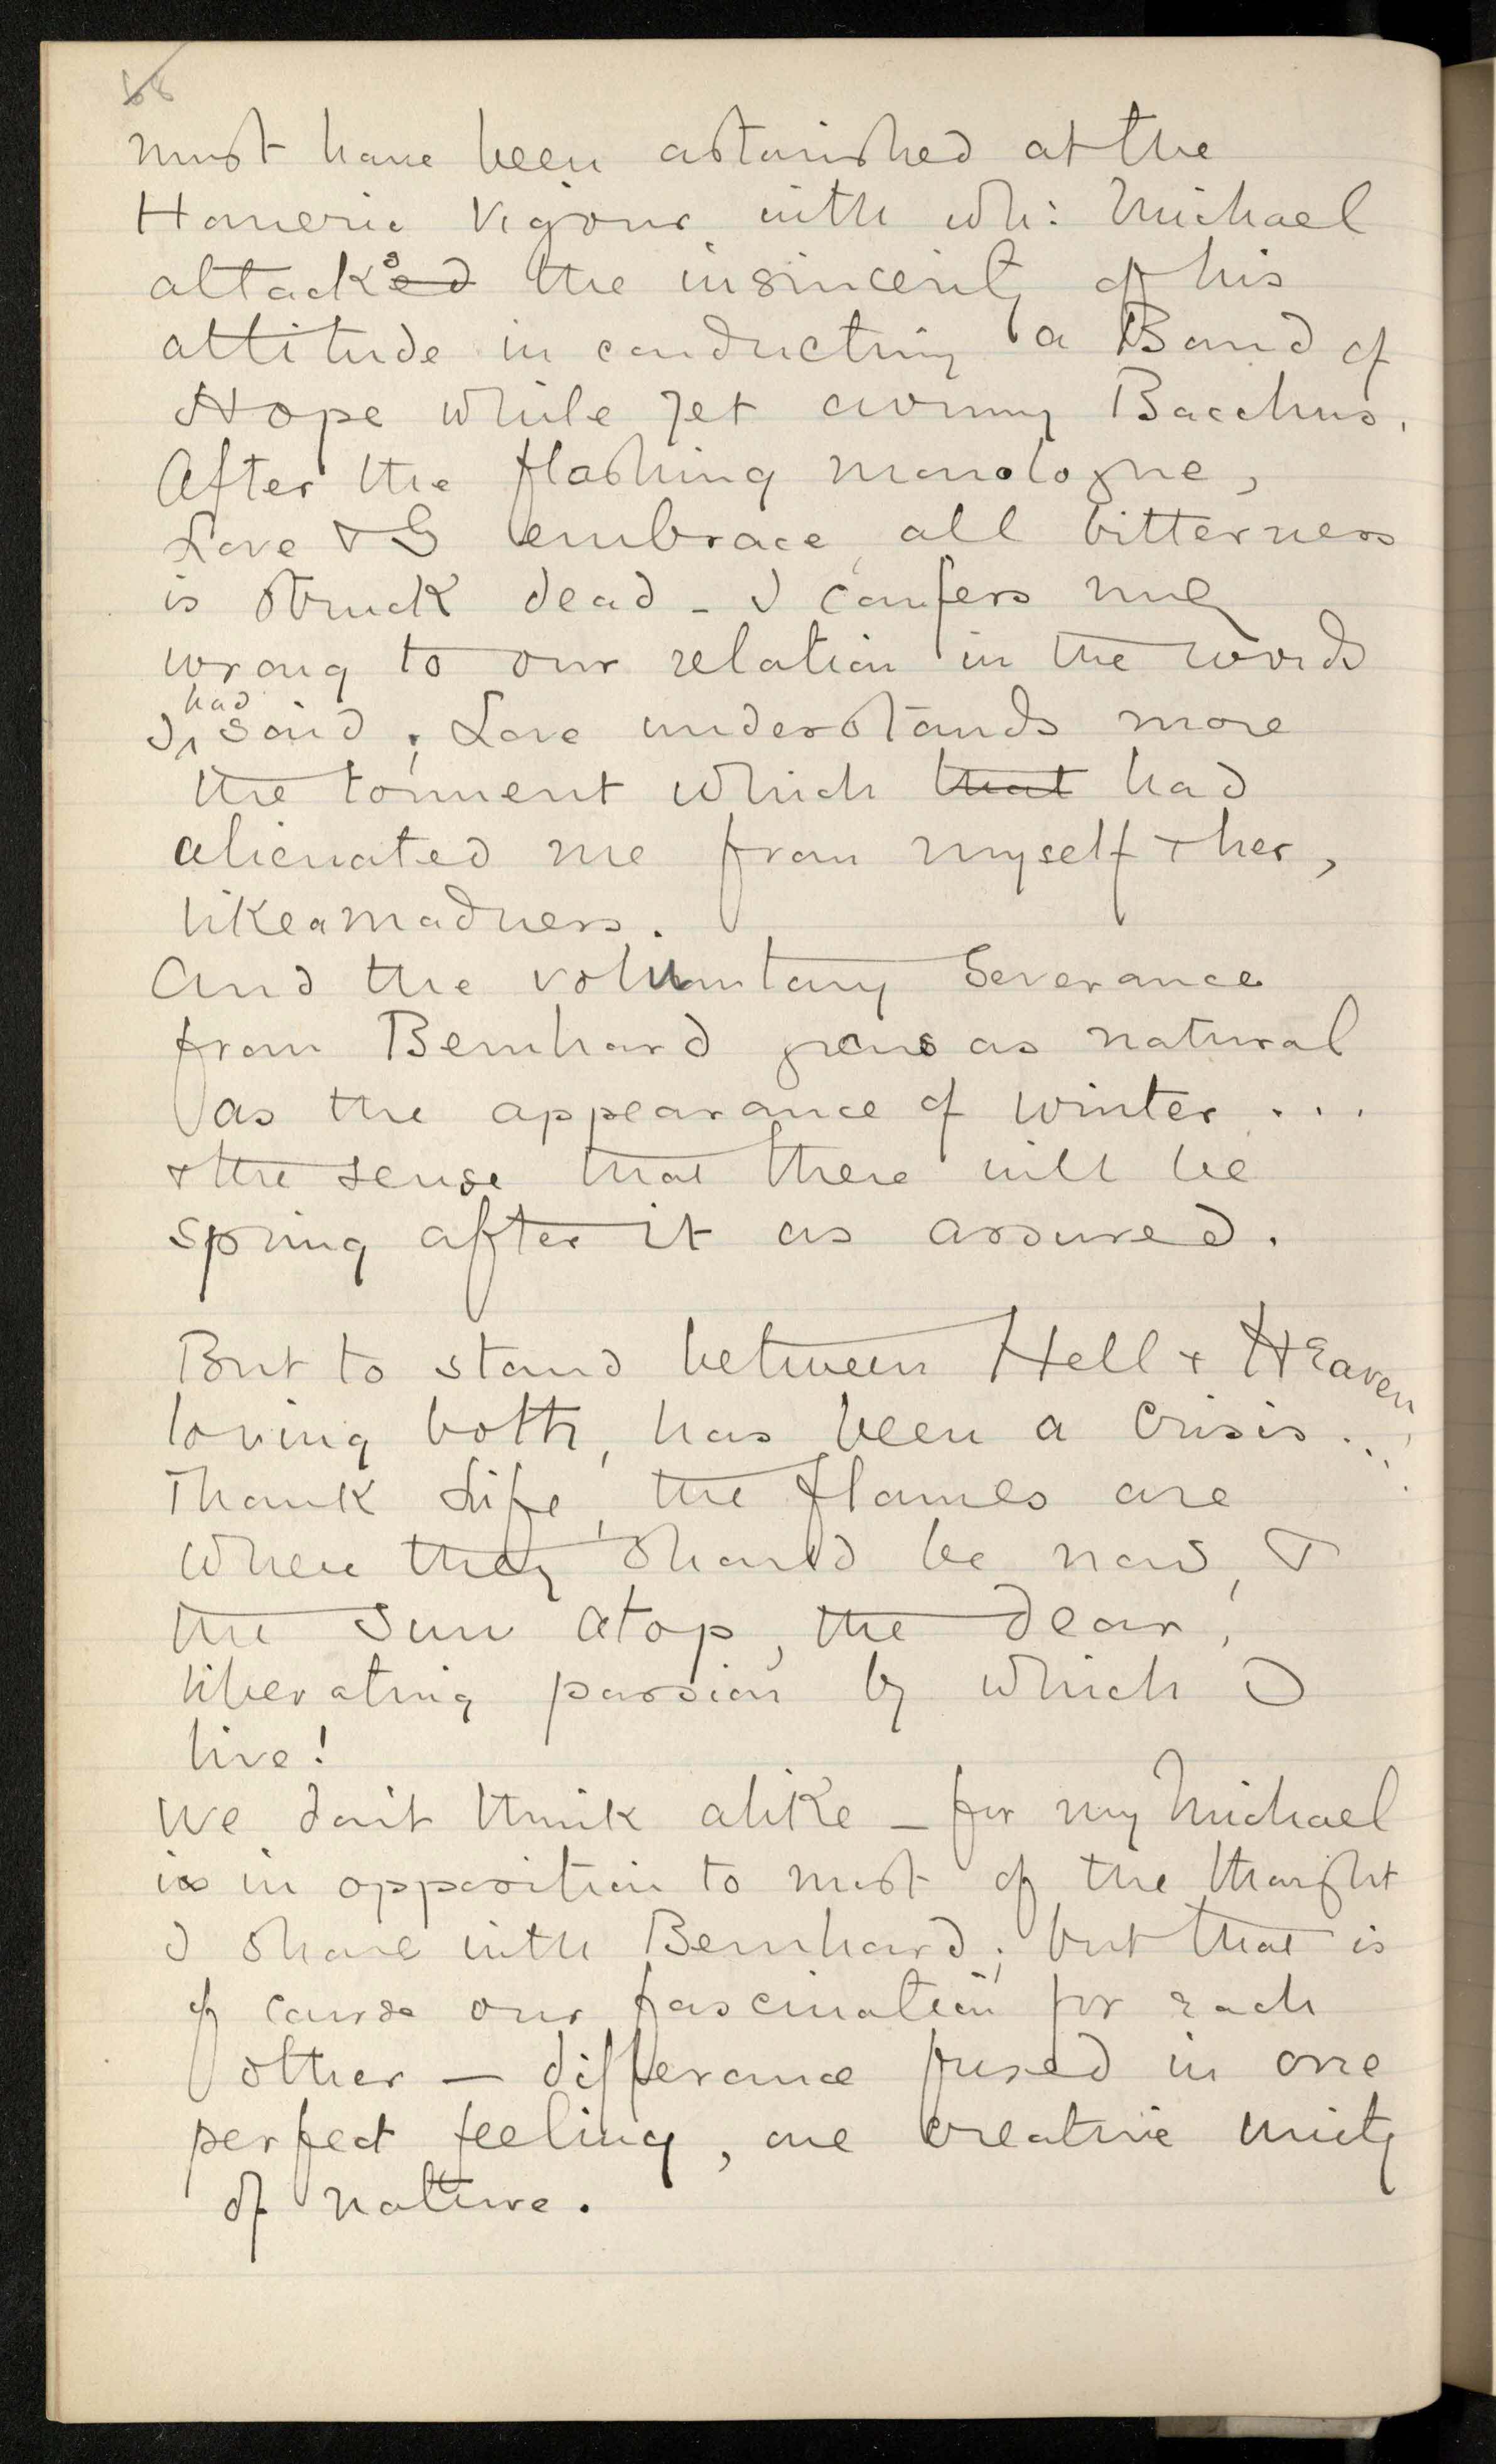 68
must have been astonished at the
Homeric vigour with wh: Michael
attacks the insincerity of his
attitude in conducting a Band of
Hope while yet avowing Bacchus.
After the flashing monologue,
Love & I embrace, all bitterness
is struck dead - I confess my
wrong to our relation in the words
I had said; Love understands more
the torment which that had
alienated me from myself & her,
like a madness.
And the voluntary severance
from Bernhard grows as natural
as the appearance of winter ...
& the sense that there will be
spring after it as assured.
But to stand between Hell & Heaven
loving both, has been a crisis ...
Thank Life, the flames are
where they should be now, &
the sun atop, the dear,
liberating passion by which I
live!
We don't think alike - for my Michael
is in opposition to most of the thought
I share with Bernhard; but that is
of course our fascination for each
other — difference fused in one
perfect feeling, one creative unity
of nature.